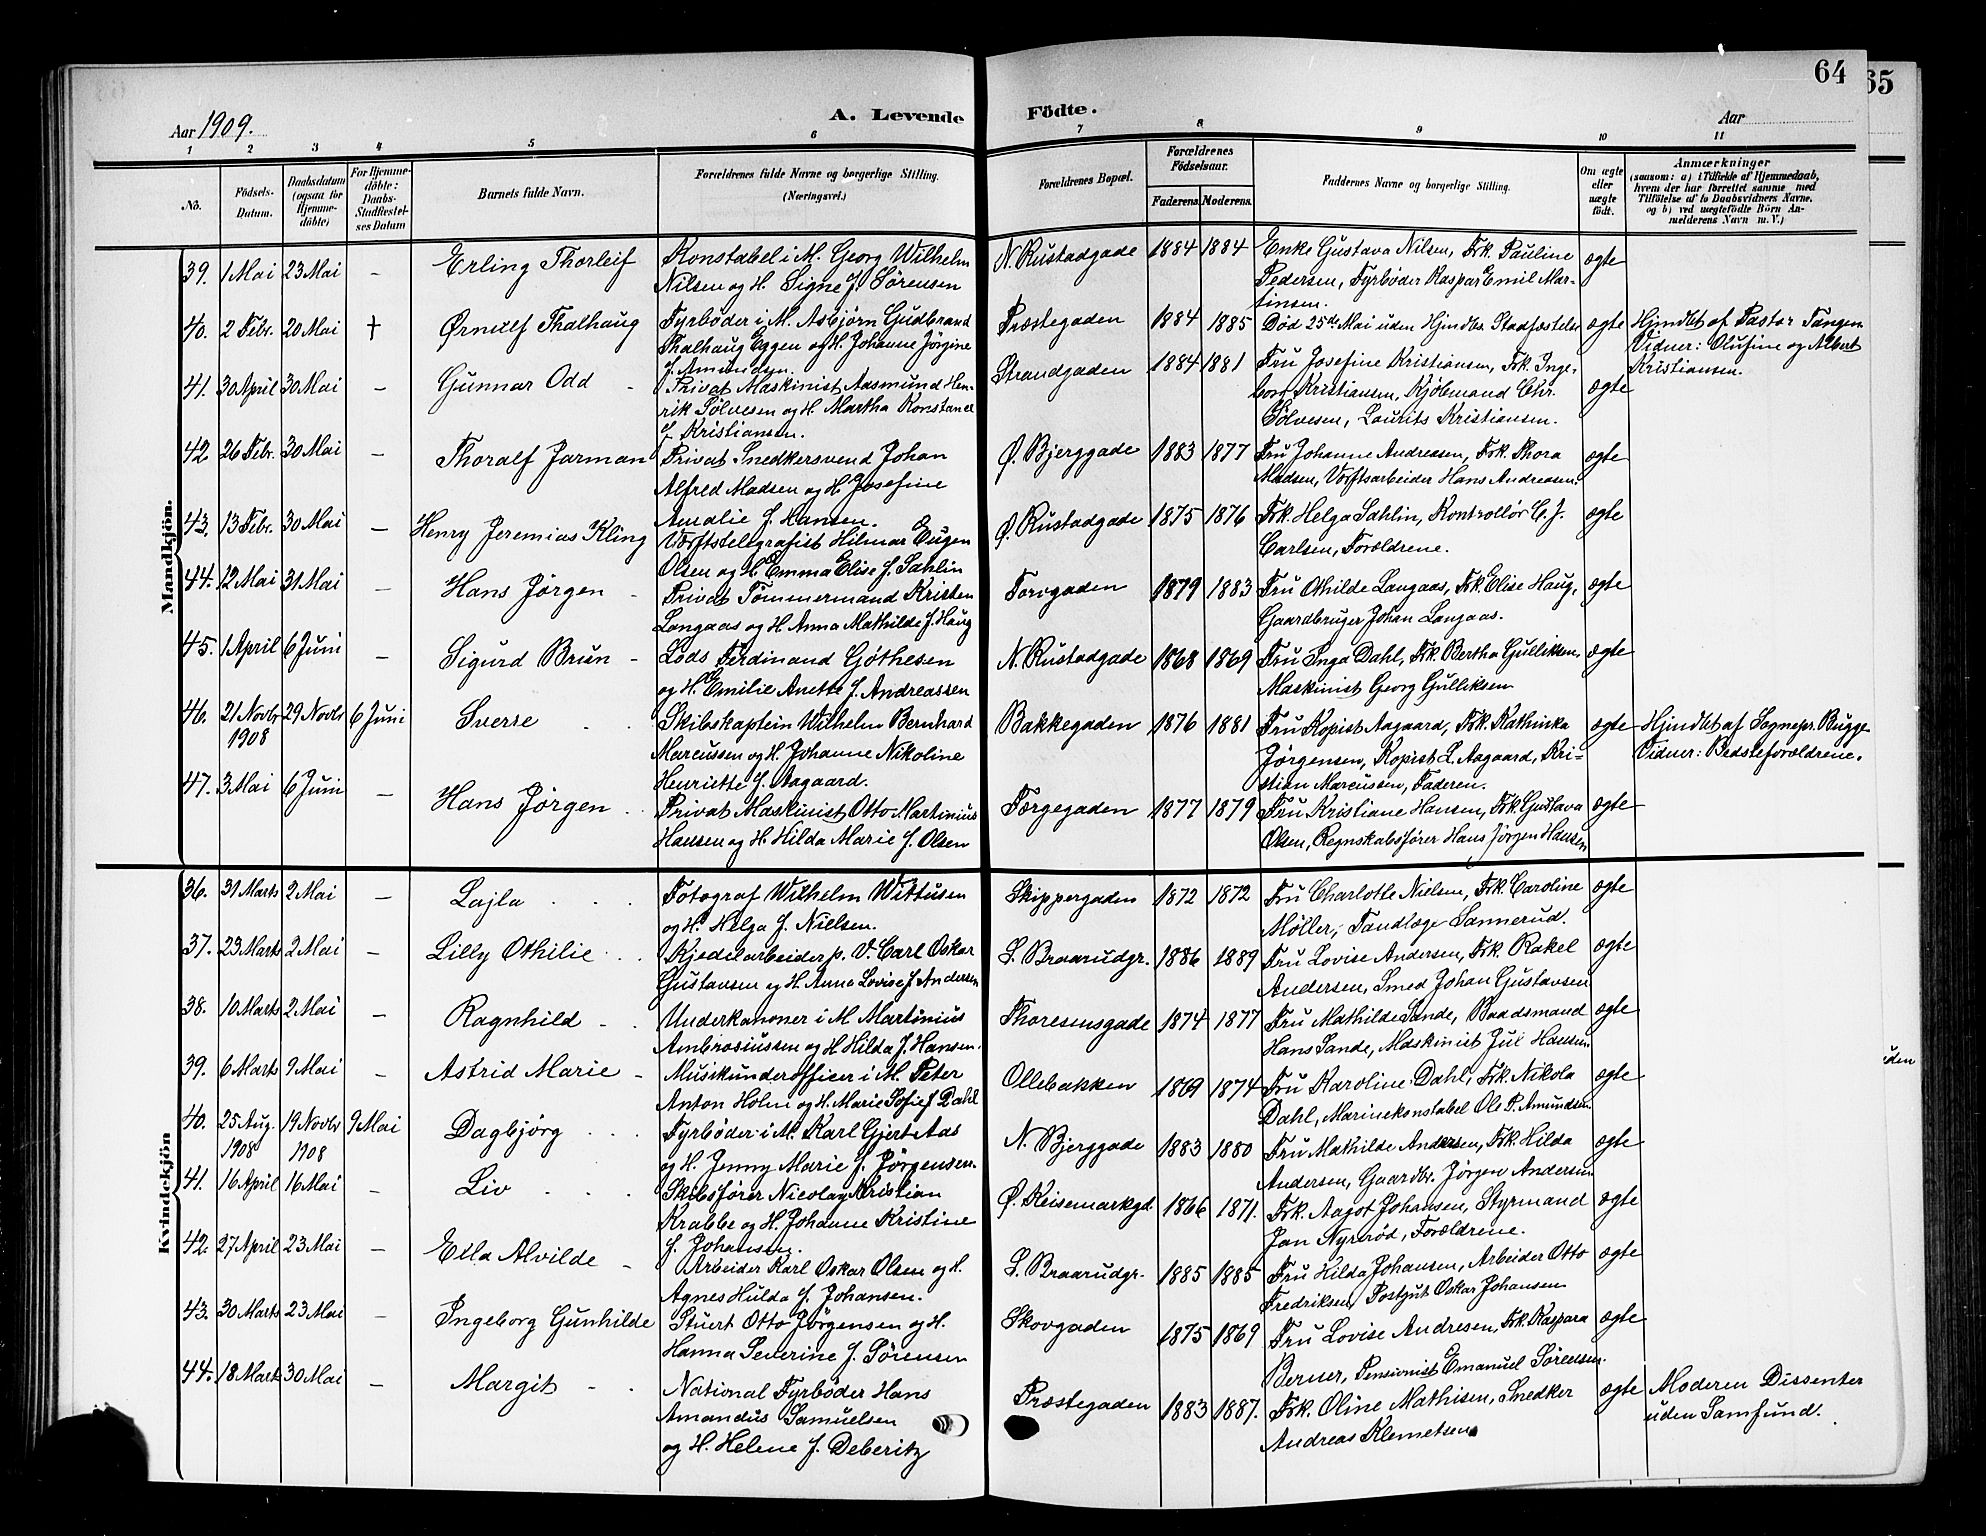 64
65
A. Levende Födte.
Aar 1909.
Aar
1 2 3 4 5 6 7 8 9 10 11
No.
Födsels-Datum.
Daabsdatum (ogsaa for Hjemme-döbte)
For Hjemme-döbte: Daabs-Stadfæstel-ses Datum
Barnets fulde Navn.
Forældrenes fulde Navne og borgerlige Stilling. (Næringsvei.)
Forældrenes Bopæl.
Forældrenes Födselsaar.
Faderens. Moderens.
Faddernes Navne og borgerlige Stilling.
Om ægte eller uægte födt.
Anmærkninger
(saasom: a) i Tilfælde af Hjemmedaab,
hvem der har forrettet samme med
Tilföielse af to Daabsvidners Navne.
og b) ved uægtefödte Börn An-
melderens Navn m. V.)
Mandkjön.
39. 1 Mai 23 Mai - Erling Thorleif
Konstabel i M. Georg Wilhelm
Nilsen og H. Signe f. Sørensen
N. Rustadgade 1884 1884
Enke Gustava Nilsen, Frk. Pauline
Pedersen, Fyrbøder Kaspar Emil Mar-
tinsen.
ægte
40. 2 Febr. 20 Mai † Ørnulf Thalhaug
Fyrbøder i M. Asbjørn Gudbrand
Thalhaug Eggen og H. Johanne Jørgine
f. Amundsen.
Præstegaden 1884 1885
Død 25de Mai uden Hjmdbs Stadfæstelse
ægte
Hjmdbt af Pastor Tangen
Vidner: Olufine og Albert
Kristiansen.
41. 30 April 30 Mai - Gunnar Odd -
Privat Maskinist Aasmund Hen-
rik Sølvesen og H. Martha Konstance
f. Kristiansen.
Strandgaden 1884 1881
Fru Josefine Kristiansen, Frk. Inge-
borg Kristiansen, Kjøbmand Chr.
Sølvesen, Laurits Kristiansen.
ægte
42. 26 Febr. 30 Mai - Thoralf Jarman
Privat Snedkersvend Johan
Alfred Madsen og H. Josefine
Amalie f. Hansen.
Ø. Bjerggade 1883 1877
Fru Johanne Andreasen, Frk. Thora
Madsen, Værftsarbeider Hans Andreasen.
ægte
43. 13 Febr. 30 Mai - Henry Jeremias Kling
Værftstelegrafist Hilmar Eugen
Olsen og H. Emma Elise f. Sahlin
Ø. Rustadgade 1875 1876
Frk. Helga Sahlin, Kontrollør C. J.
Carlsen, Forældrene.
ægte
44. 12 Mai 31 Mai - Hans Jørgen -
Privat Tømmermand Kristen
Langaas og H. Anna Mathilde f. Haug
Torvgaden 1879 1883
Fru Othilde Langaas, Frk. Elise Haug,
Gaardbruger Johan Langaas.
ægte
45. 1 April 6 Juni - Sigurd Brun -
Lods Ferdinand Gøthesen
og H. Emilie Anette f. Andreassen
N. Rustadgade 1868 1869
Fru Inga Dahl, Frk. Bertha Gulliksen,
Maskinist Georg Gulliksen
ægte
46. 21 Novbr 1908 29 Novbr 6 Juni Sverre
Skibskaptein Wilhelm Bernhard
Marcussen og H. Johanne Nikoline
Henriette f. Aagaard.
Bakkegaden 1876 1881
Fru Kopist Aagaard, Frk. Kathinka
Jørgensen, Kopist L. Aagaard, Kri-
stian Marcussen, Faderen.
ægte
Hjmdbt af Sognepr. Bugge
Vidner: Bedsteforældrene.
47. 3 Mai 6 Juni - Hans Jørgen
Privat Maskinist Otto Martinius
Hansen og H. Hilda Marie f. Olsen
Færgegaden 1877 1879
Fru Kristiane Hansen, Frk. Gustava
Olsen, Regnskabsfører Hans Jørgen Hansen
ægte
Kvindekjön
36. 31 Marts 2 Mai - Lajla
Fotograf Wilhelm Wittusen
og H. Helga f. Nielsen.
Skippergaden 1872 1872
Fru Charlotte Nielsen, Frk. Caroline
Møller, Tandlæge Sannerud.
ægte
37. 23 Marts 2 Mai - Lilly Othilie
Kjedelarbeider p. V. Carl Oskar
Gustavsen og H. Anna Lovise f. Andersen
S. Braarudgr. 1886 1889
Fru Lovise Andersen, Frk. Rakel
Andersen, Smed Johan Gustavsen
ægte
38. 10 Marts 2 Mai - Ragnhild
Underkanoner i M Martinius
Ambrosiussen og H. Hilda f. Hansen.
Thoresensgade 1874 1877
Fru Mathilde Sande, Baadsmand
Hans Sande, Maskinist Jul Hansen
ægte
39. 6 Marts 9 Mai - Astrid Marie -
Musikunderofficer i M. Peter
Anton Holm og H. Marie Sofie f. Dahl
Ollebakken 1869 1874
Fru Karoline Dahl, Frk. Nikola
Dahl, Marinekonstabel Ole P. Amundsen
ægte
40. 25 Aug. 1908 19 Novbr 1908 9 Mai Dagbjørg
Fyrbøder i M. Karl Gjert Aas
og H. Jenny Marie f. Jørgensen.
N. Bjerggade 1883 1880
Fru Mathilde Andersen, Frk. Hilda
Andersen, Gaardbr. Jørgen Andersen
ægte
41. 16 April 16 Mai - Liv
Skibsfører Nicolay Kristian
Krabbe og H. Johanne Kristine
f. Johansen.
Ø. Keisemarkgd. 1866 1871.
Frk. Aagot Johansen, Styrmand
Jan Nyrød, Forældrene.
ægte
42. 27 April 23 Mai - Ella Alvilde -
Arbeider Karl Oskar Olsen og H.
Agnes Hulda f. Johansen.
S. Braarudgr. 1885 1885
Fru Hilda Johansen, Arbeider Otto
Fredriksen, Postgut Oskar Johansen
ægte
43. 30 Marts 23 Mai - Ingeborg Gunhilde
Stuert Otto Jørgensen og H.
Hanna Severine f. Sørensen
Skovgaden 1875 1869
Fru Lovise Andresen, Frk. Kaspara
Berner, Pensionist Emanuel Sørensen.
ægte
44. 18 Marts 30 Mai - Margit
National Fyrbøder Hans
Amandus Samuelsen
og H. Helene f. Deberitz
Præstegaden 1883 1887.
Frk. Oline Mathisen, Snedker
Andreas Klemetsen.
ægte
Moderen Dissenter
uden Samfund.
uden